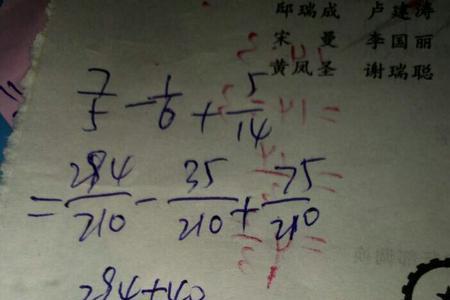 邸瑞成 卢建涛
宋曼 李国丽
黄凤圣 谢瑞聪
7/5 - 1/6 + 5/14
= 284/210 - 35/210 + 75/210
284+40